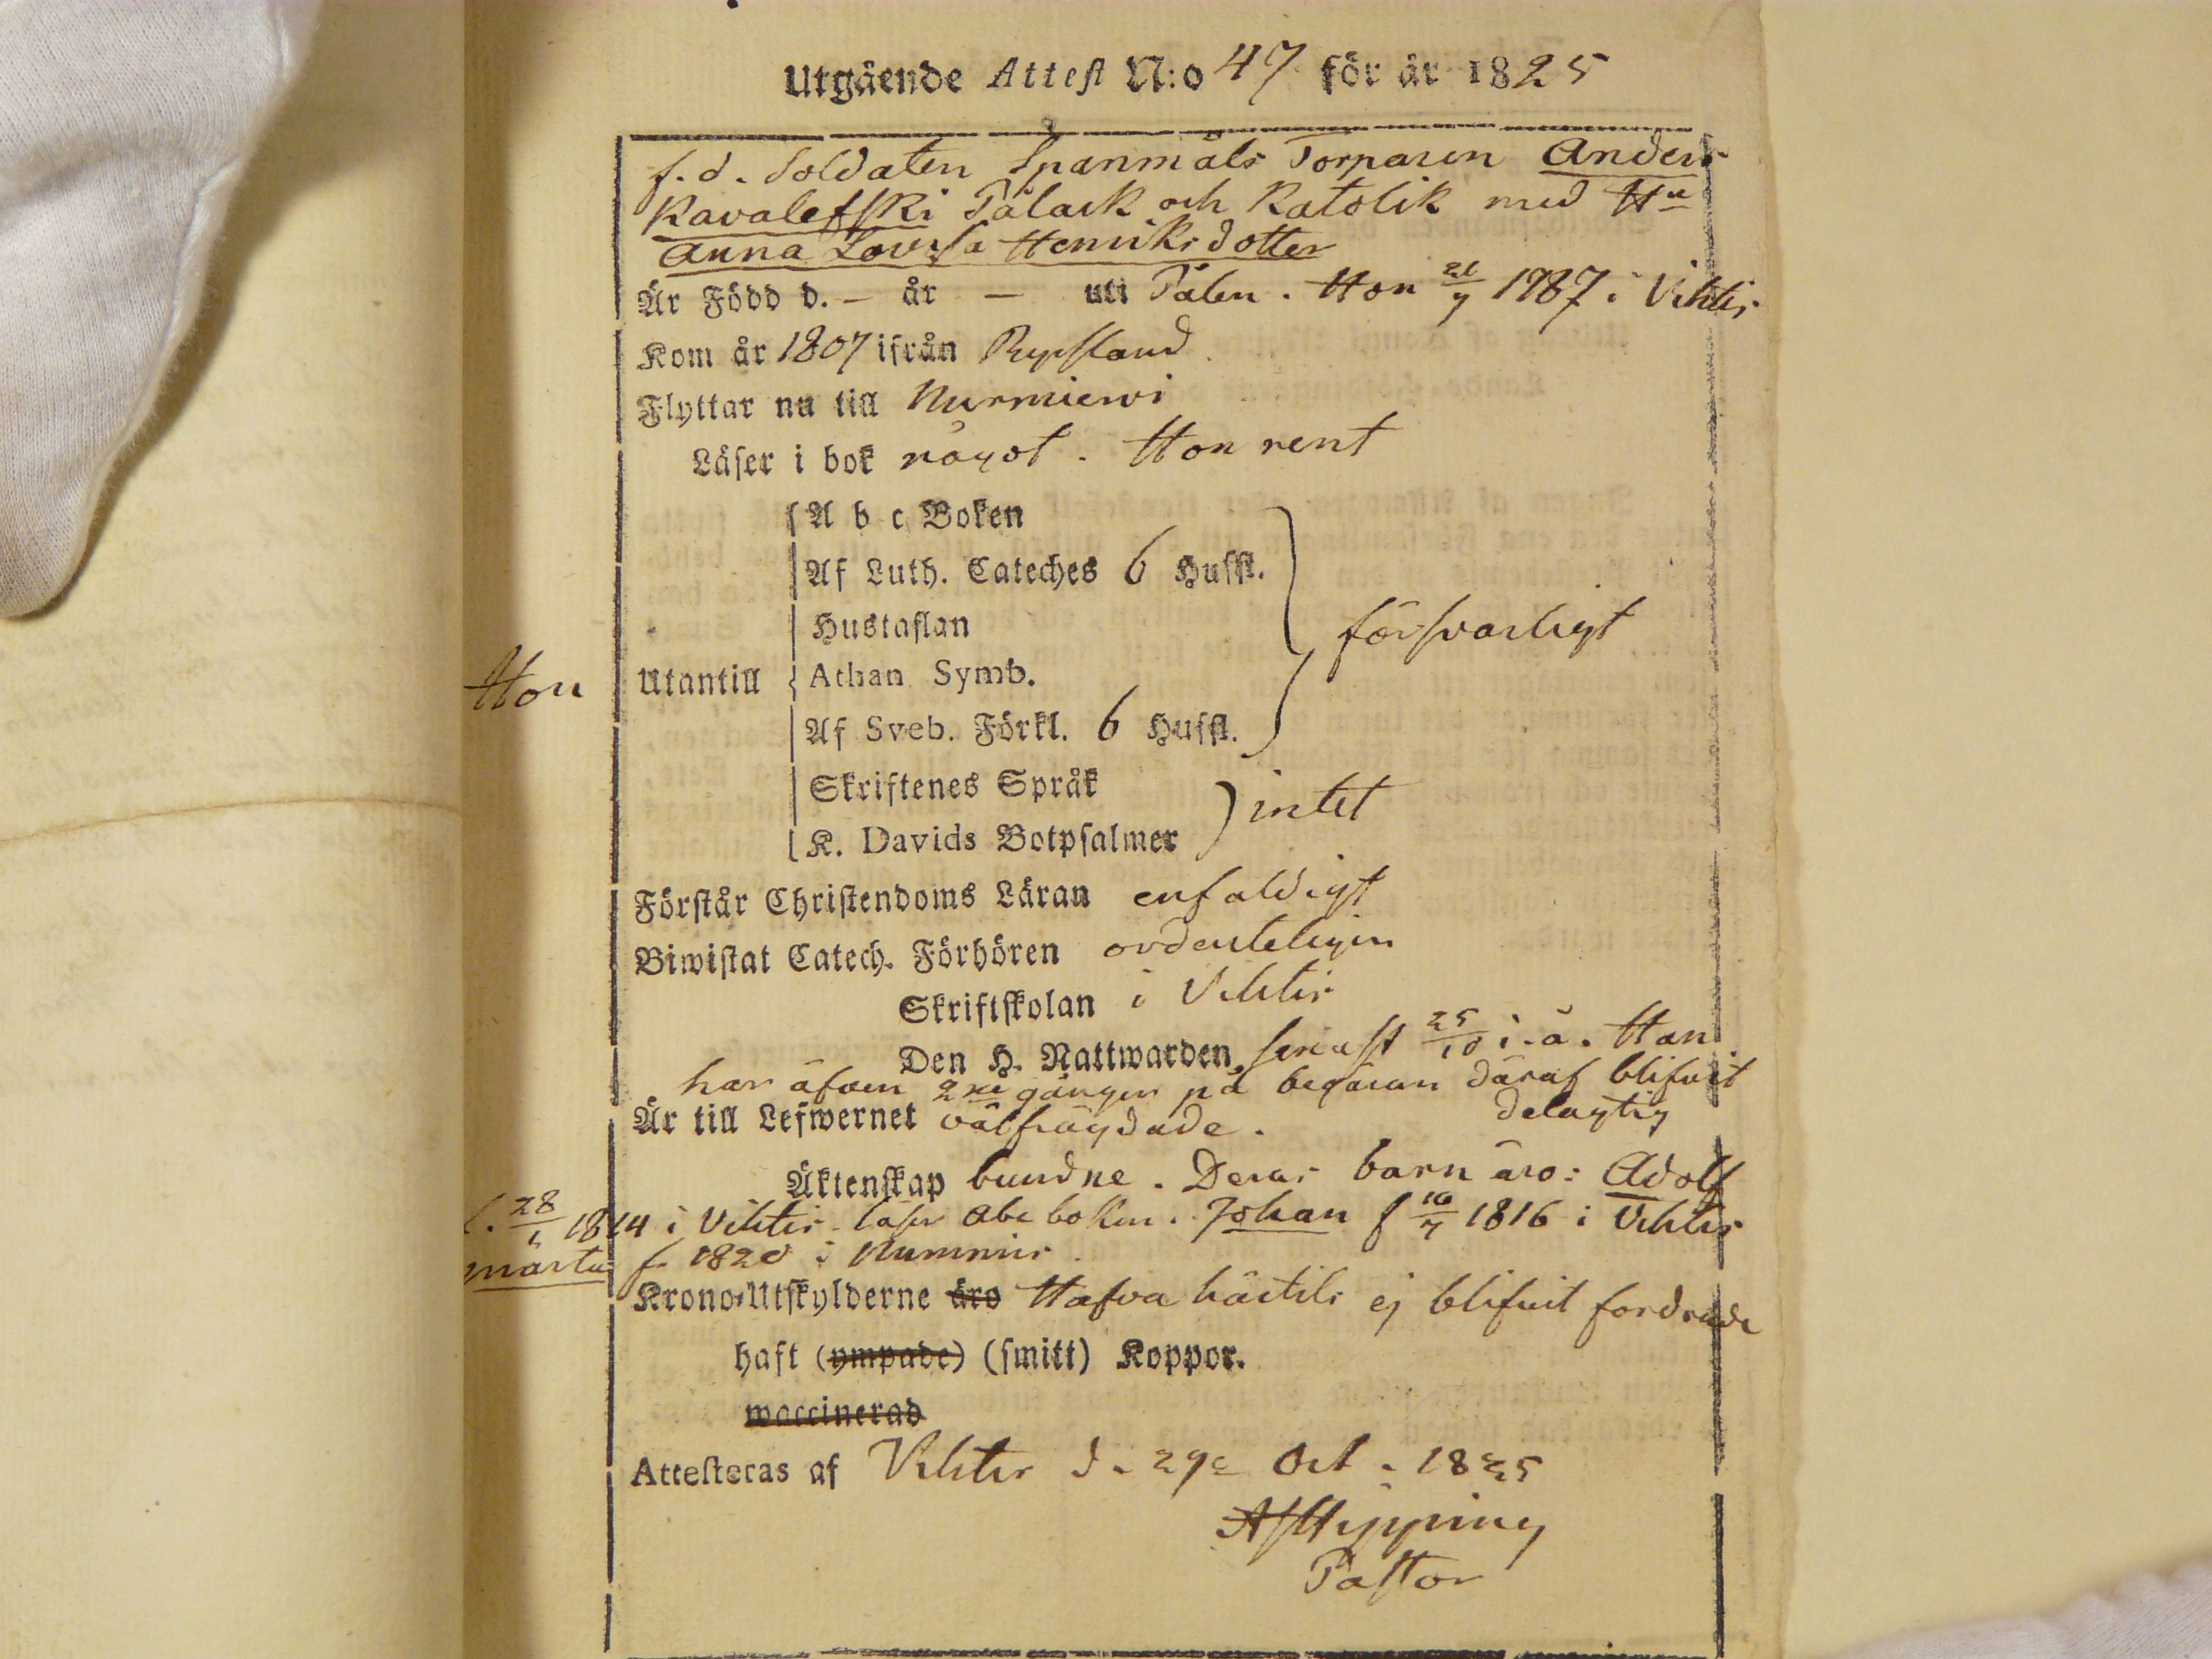 Utgående Attest N:o 47 för år 1825
f. d. Soldaten Spanmåls Torparen Anders
Kavalefski Pålack och Katolik med Hu
Anna Lovisa Henriksdotter
Är Född d. – år – uti Pålen. Hon 21/7 1787 i Vihtis
Kom år 1807 ifrån Ryssland.
Flyttar nu till Nurmierwi
Läser i bok något. Hon rent
A b c Boken
Af Luth. Cateches 6 Hufst.
Hustaflan
försvarligt
Hon Utantill Athan Symb.
Af Sveb. Förkl. 6 Hufst.
Skriftenes Språk
intet
K. Davids Botpsalmer
Förstår Christendoms Läran enfaldigt
Biwistat Catech. Förhören ordenteligen
Skriftskolan i Vihtis
Den H. Nattwarden senast 25/10 i. å. Han
har äfven 2ne gånger på begäran däraf blifvit
delagtig
Är till Lefwernet välfrägdade.
Äktenskap bundne. Deras barn äro: Adolf
f. 28/1 1814 i Vihtis läser Abc boken. Johan f 16/7 1816 i Vihtis
Märta f. 1820 i Nummis.
Krono-Utskylderne äro Hafva härtils ej blifvit fordrade
haft (ympade) (smitt) Koppor.
waccinerad
Attesteras af Vihtis d. 29e Oct. 1825
AJHipping
Pastor